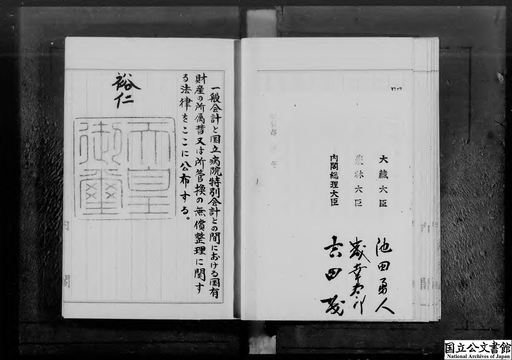 一般会計と国立病院特別会計との間における国有
財産の所属替又は所管換の無償整理に関す
る法律をここに公布する。
裕仁
天皇
御璽
大蔵大臣
池田勇人
農林大臣
内閣総理大臣
吉田茂
国立公文書館
National Archives of Japan